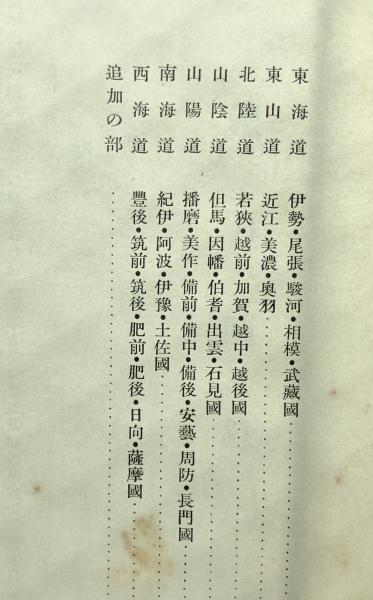 東海道 伊勢・尾張・駿河・相模・武藏國
東山道 近江・美濃・奥羽
北陸道 若狹・越前・加賀・越中・越後國
山陰道 但馬・因幡・伯耆・出雲・石見國
山陽道 播磨・美作・備前・備中・備後・安藝・周防・長門國
南海道 紀伊・阿波・伊豫・土佐國
西海道 豐後・筑前・筑後・肥前・肥後・日向・薩摩國
追加の部